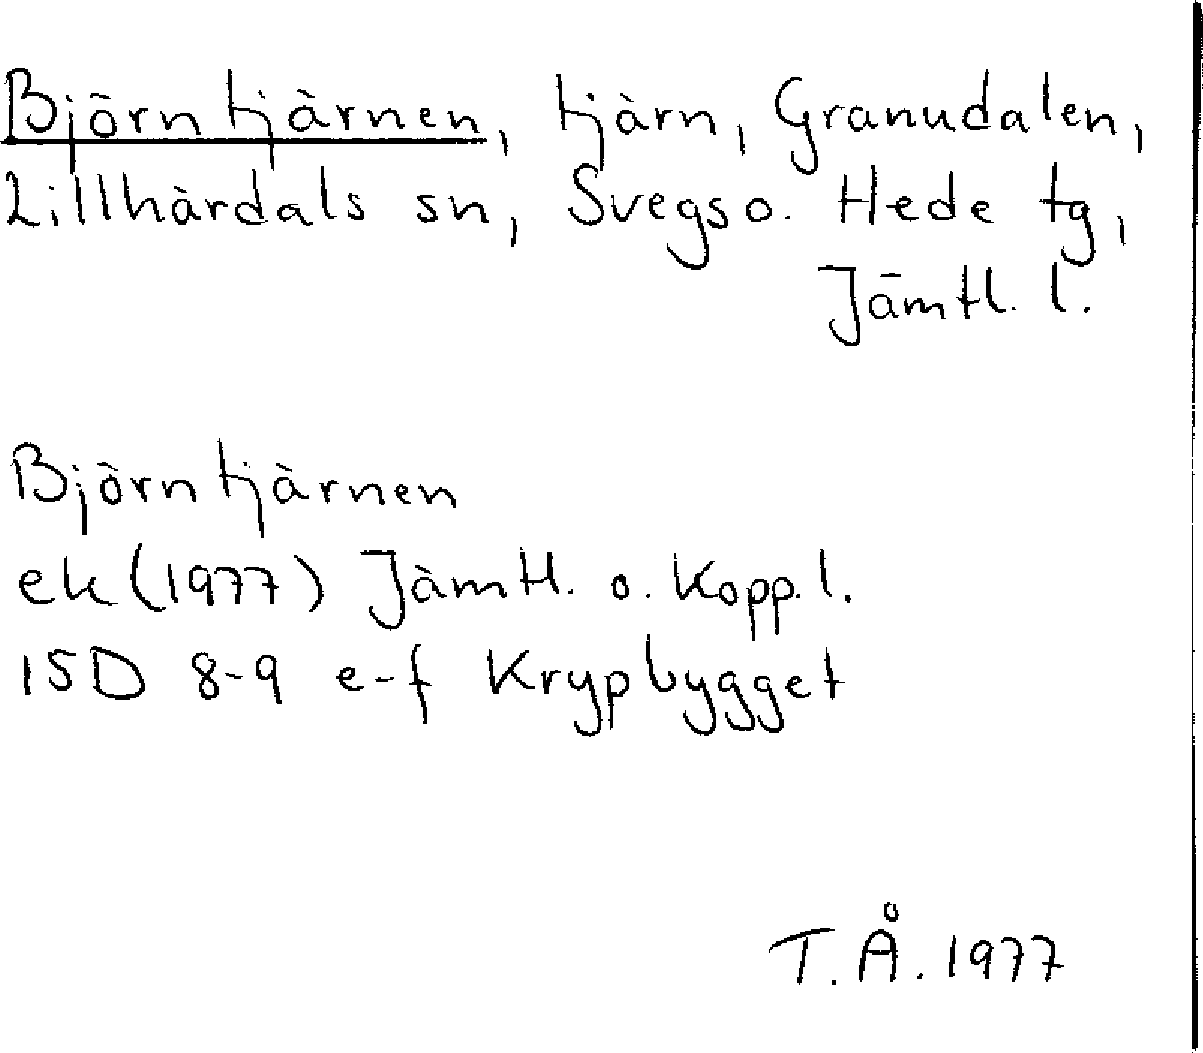 Björntjärnen, tjärn, Granudalen,
Lillhärdals sn, Svegs o. Hede tg,
Jämtl. l.
Björntjärnen
ek (1977) Jämtl. o. Kopp. l.
15D 8-9 e-f Krypbygget
T.Å. 1977